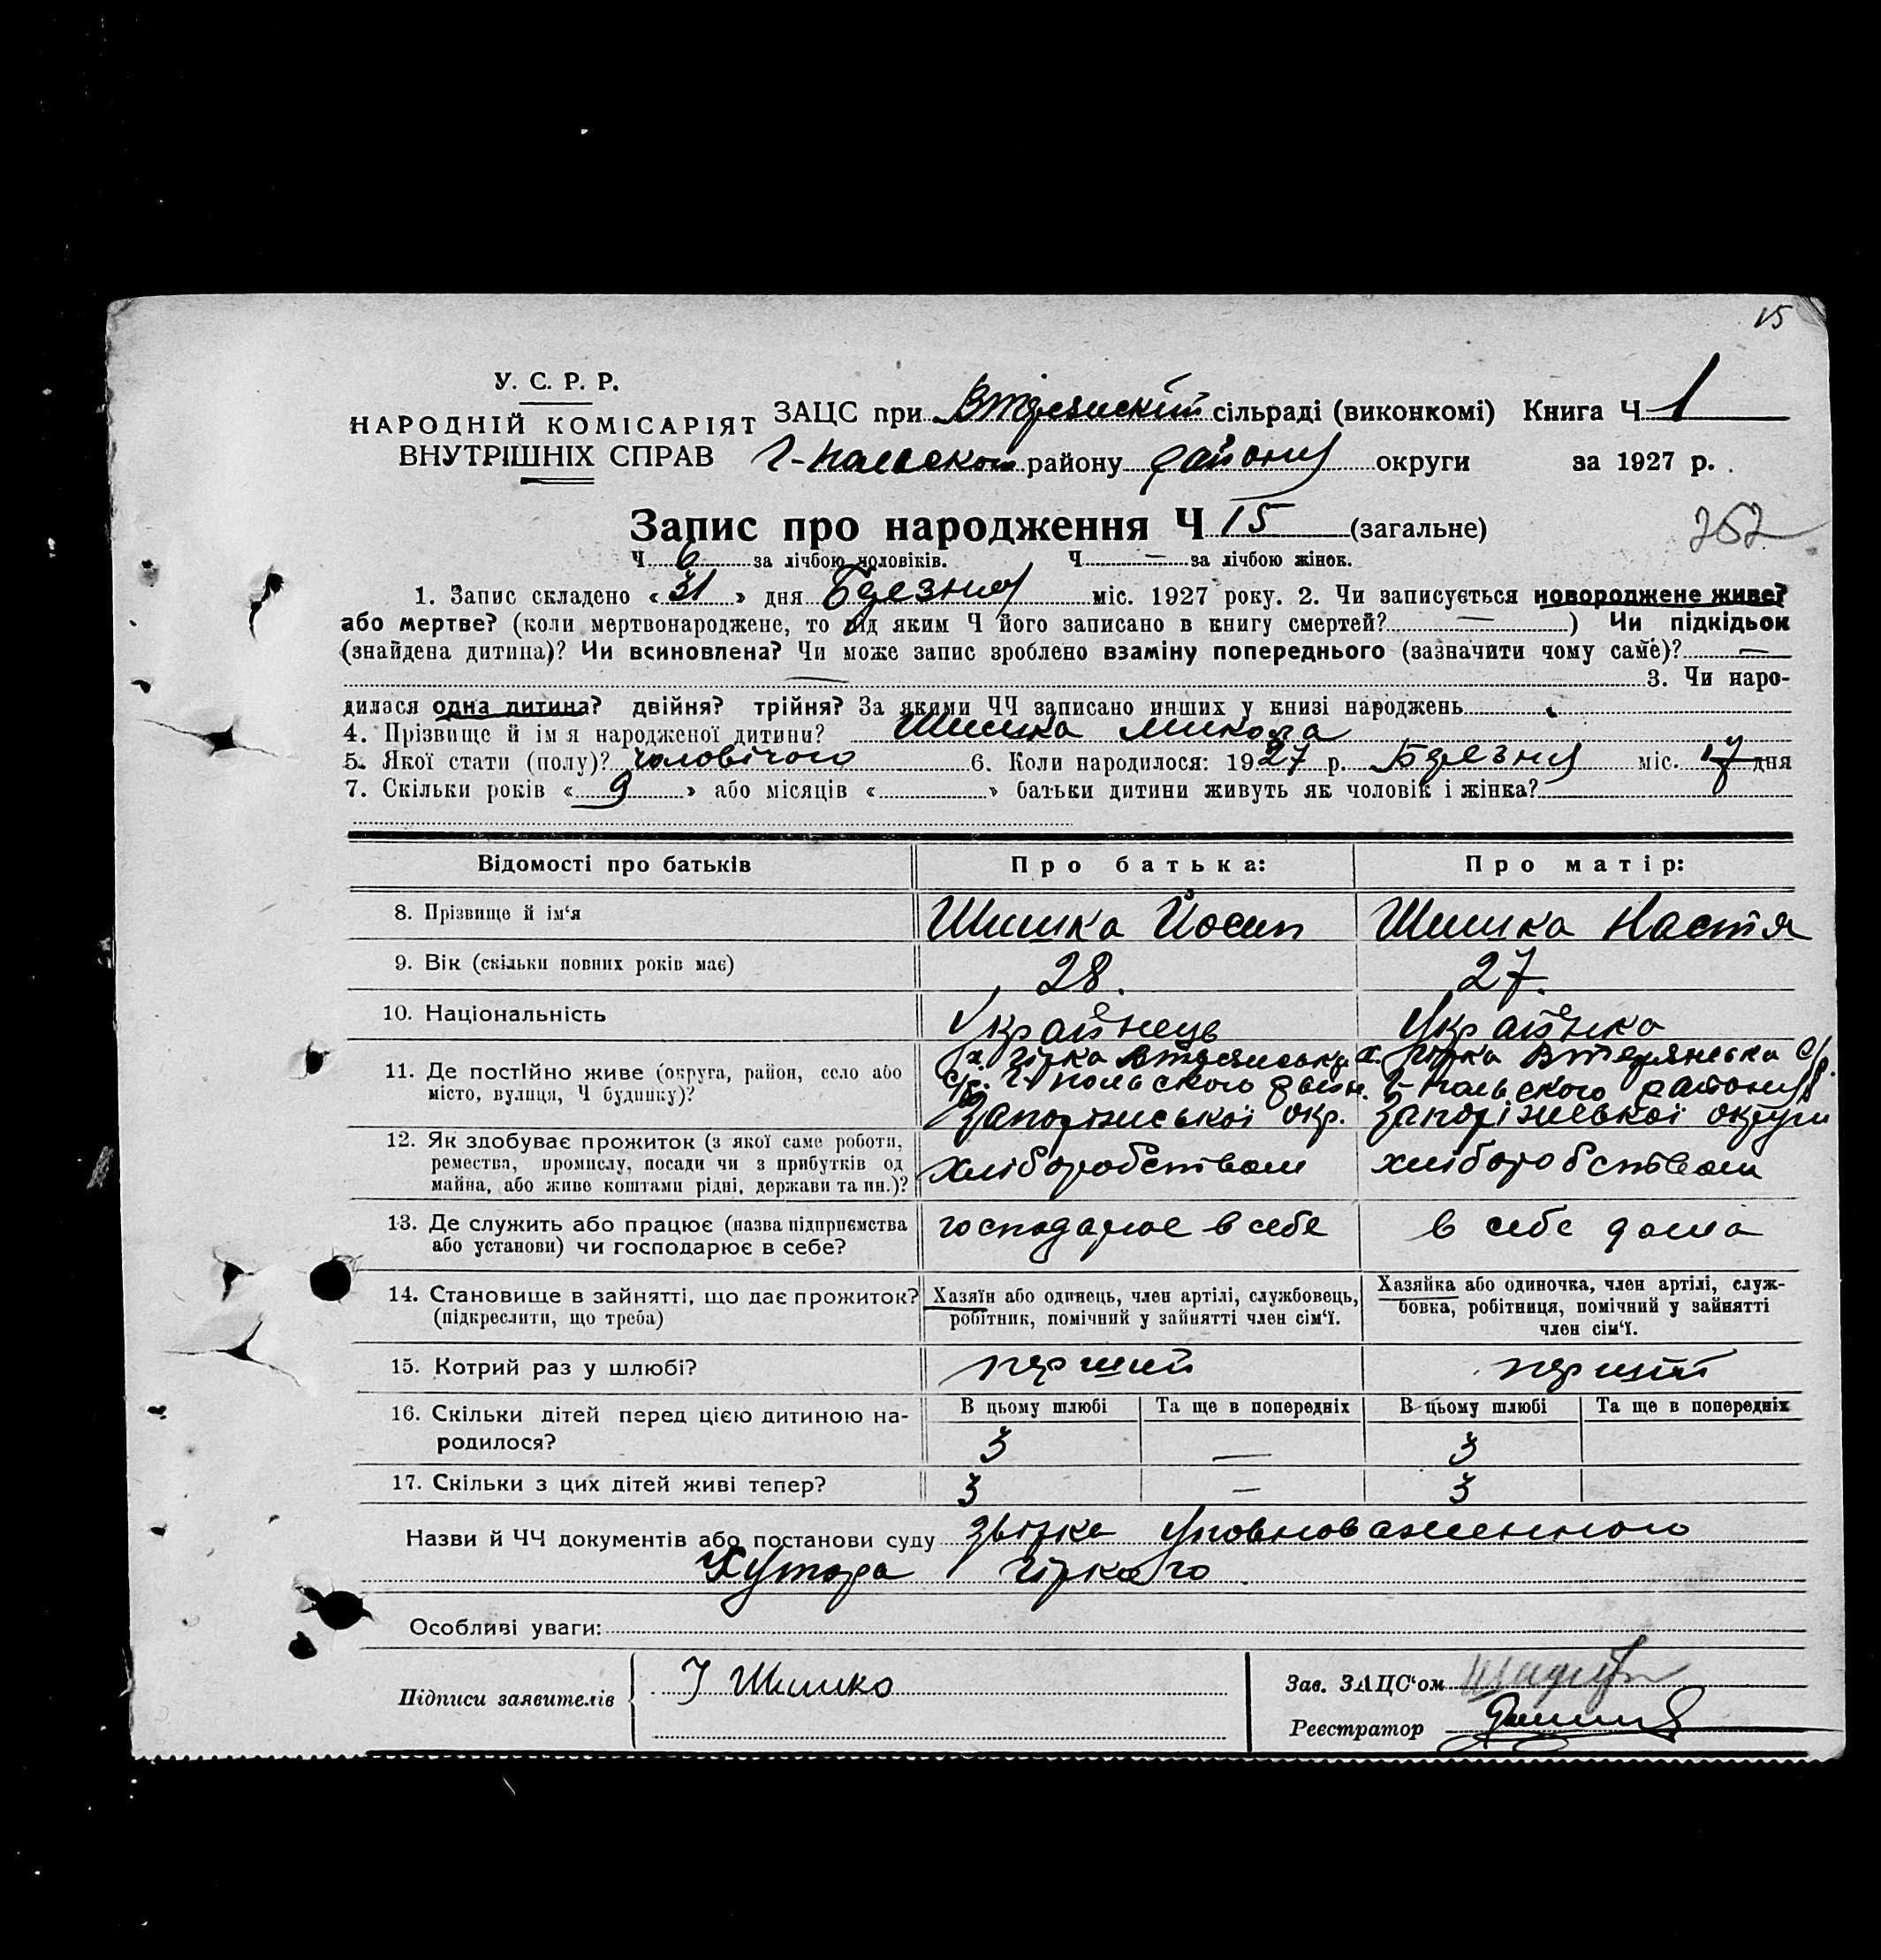 15
У. С. Р. Р.
НАРОДНІЙ КОМІСАРІЯТ
ВНУТРІШНІХ СПРАВ
ЗАЦС при сільраді (виконкомі) Книга Ч 1
району району округи за 1927 р.
Запис про народження Ч 15 (загальне)
252
Ч 6 за лічбою чоловіків. Ч — за лічбою жінок.
1. Запис складено «31» дня Березня міс. 1927 року. 2. Чи записується новороджене живе?
або мертве? (коли мертвонароджене, то під яким Ч його записано в книгу смертей? — ) Чи підкідьок
(знайдена дитина)? Чи всиновлена? Чи може запис зроблено взаміну попереднього (зазначити чому саме)? —
— 3. Чи наро-
дилася одна дитина? двійня? трійня? За якими ЧЧ записано инших у книзі народжень
4. Прізвище й ім'я народженої дитини? Шишка Микола
5. Якої стати (полу)? чоловічого 6. Коли народилося: 1927 р. Березня міс. 17 дня
7. Скільки років «9» або місяців « » батьки дитини живуть як чоловік і жінка?
Відомості про батьків Про батька: Про матір:
8. Прізвище й ім'я Шишка Йосип Шишка Настя
9. Вік (скільки повних років має) 28. 27.
10. Національність Українець Українка
11. Де постійно живе (округа, район, село або
місто, вулиця, Ч будинку)?
х. Гірка с/р.
х. Гірка с/р.
Г-польського район. Г-польського району
Запоріжської окр. Запоріжської округи
12. Як здобуває прожиток (з якої саме роботи,
ремества, промислу, посади чи з прибутків од
майна, або живе коштами рідні, держави та ин.)?
хліборобством хліборобством
13. Де служить або працює (назва підприємства
або установи) чи господарює в себе?
господарює в себе в себе дома
14. Становище в зайнятті, що дає прожиток?
(підкреслити, що треба)
Хазяїн або одинець, член артілі, службовець,
робітник, помічний у зайнятті член сім'ї.
Хазяйка або одиночка, член артілі, служ-
бовка, робітниця, помічний у зайнятті
член сім'ї.
15. Котрий раз у шлюбі? перший перший
16. Скільки дітей перед цією дитиною на-
родилося?
В цьому шлюбі Та ще в попередніх В цьому шлюбі Та ще в попередніх
3 — 3
17. Скільки з цих дітей живі тепер? 3 — 3
Назви й ЧЧ документів або постанови суду уповноваженного
Хутора Гіркого
Особливі уваги:
Підписи заявителів І Шишко
Зав. ЗАЦС'ом
Реєстратор